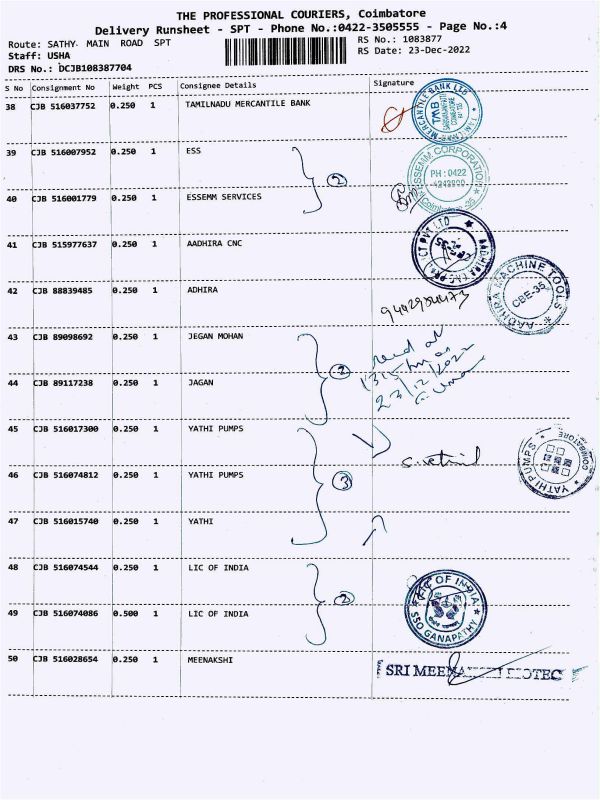 THE PROFESSIONAL COURIERS, Coimbatore
Delivery Runsheet - SPT - Phone No.:0422-3505555 - Page No.:4
Route: SATHY MAIN ROAD SPT
RS No.: 1083877
Staff: USHA
RS Date: 23-Dec-2022
DRS No.: DCJB108387704
S No Consignment No Weight PCS Consignee Details Signature
38 CJB 516037752 0.250 1 TAMILNADU MERCANTILE BANK
TMB
39 CJB 516007952 0.250 1 ESS
ESSEMM CORPORATION
PH : 0422
Coimbatore-35
2
40 CJB 516001779 0.250 1 ESSEMM SERVICES
41 CJB 515977637 0.250 1 AADHIRA CNC
42 CJB 88839485 0.250 1 ADHIRA
AADHIRA MACHINE TOOLS
CBE-35
43 CJB 89098692 0.250 1 JEGAN MOHAN
2
23/12/2022
44 CJB 89117238 0.250 1 JAGAN
45 CJB 516017300 0.250 1 YATHI PUMPS
YATHI PUMPS
COIMBATORE
46 CJB 516074812 0.250 1 YATHI PUMPS
3
47 CJB 516015740 0.250 1 YATHI
48 CJB 516074544 0.250 1 LIC OF INDIA
2
LIC OF INDIA
SSO GANAPATHY
49 CJB 516074086 0.500 1 LIC OF INDIA
50 CJB 516028654 0.250 1 MEENAKSHI
SRI